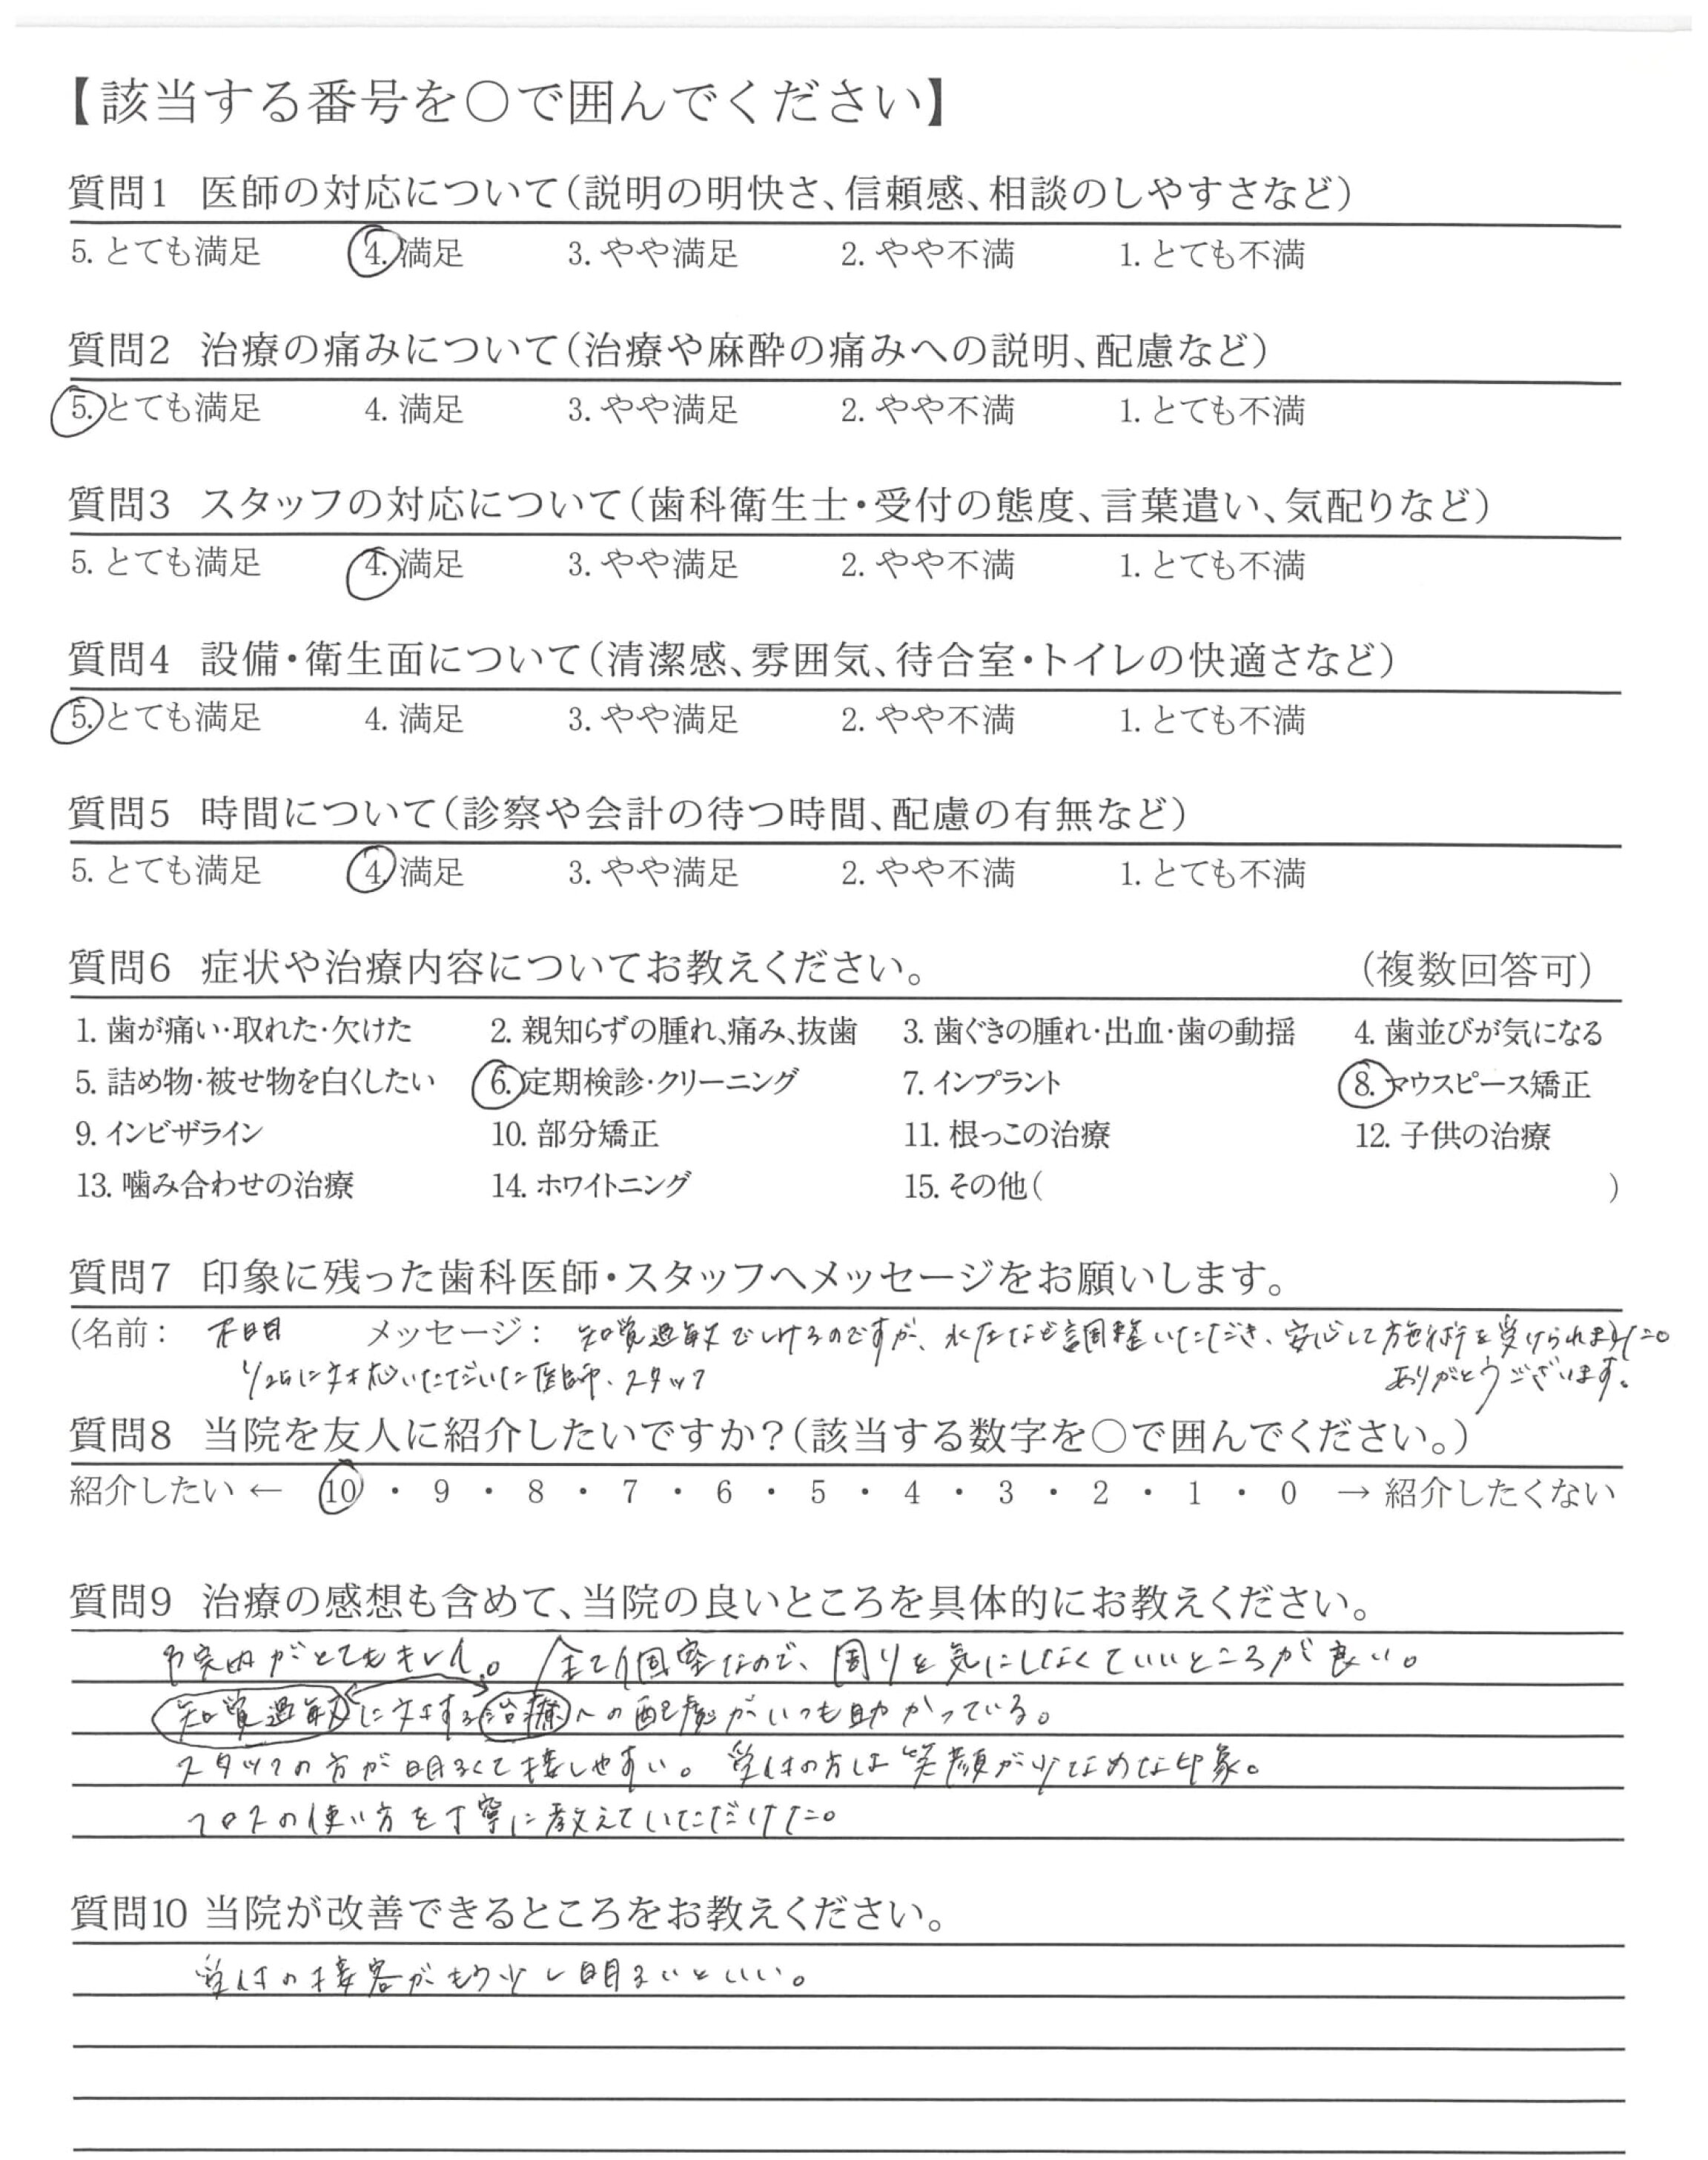 【該当する番号を○で囲んでください】
質問1 医師の対応について(説明の明快さ、信頼感、相談のしやすさなど)
5. とても満足 4. 満足 3. やや満足 2. やや不満 1. とても不満
質問2 治療の痛みについて(治療や麻酔の痛みへの説明、配慮など)
5. とても満足 4. 満足 3. やや満足 2. やや不満 1. とても不満
質問3 スタッフの対応について(歯科衛生士・受付の態度、言葉遣い、気配りなど)
5. とても満足 4. 満足 3. やや満足 2. やや不満 1. とても不満
質問4 設備・衛生面について(清潔感、雰囲気、待合室・トイレの快適さなど)
5. とても満足 4. 満足 3. やや満足 2. やや不満 1. とても不満
質問5 時間について(診察や会計の待つ時間、配慮の有無など)
5. とても満足 4. 満足 3. やや満足 2. やや不満 1. とても不満
質問6 症状や治療内容についてお教えください。 (複数回答可)
1. 歯が痛い・取れた・欠けた 2. 親知らずの腫れ、痛み、抜歯 3. 歯ぐきの腫れ・出血・歯の動揺 4. 歯並びが気になる
5. 詰め物・被せ物を白くしたい 6. 定期検診・クリーニング 7. インプラント 8. マウスピース矯正
9. インビザライン 10. 部分矯正 11. 根っこの治療 12. 子供の治療
13. 噛み合わせの治療 14. ホワイトニング 15. その他( )
質問7 印象に残った歯科医師・スタッフへメッセージをお願いします。
(名前: 不明 メッセージ: 知覚過敏でしけるのですが、水圧など調整いただき、安心して施術を受けられました。
1/26に対応いただいた医師、スタッフ ありがとうございます。
質問8 当院を友人に紹介したいですか?(該当する数字を○で囲んでください。)
紹介したい ← 10 ・ 9 ・ 8 ・ 7 ・ 6 ・ 5 ・ 4 ・ 3 ・ 2 ・ 1 ・ 0 → 紹介したくない
質問9 治療の感想も含めて、当院の良いところを具体的にお教えください。
がとてもキレイ。全て個室なので、周りを気にしなくていいところが良い。
知覚過敏に対する治療への配慮がいつも助かっている。
スタッフの方が明るくて接しやすい。受付の方は笑顔が少なめな印象。
フロスの使い方を丁寧に教えていただけた。
質問10 当院が改善できるところをお教えください。
受付の接客がもう少し明るいといい。